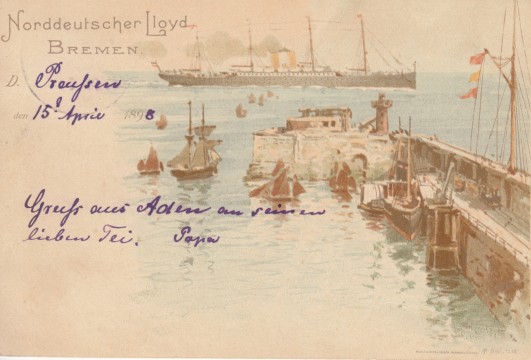 Norddeutscher Lloyd
BREMEN.
D. Preussen
den 15. April 1898
Gruß aus Aden an seinen
lieben Tei. Papa